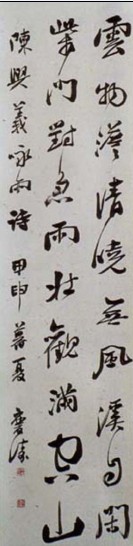 雲物澹清曉無風溪自閑
柴門對急雨壯觀滿空山
陳與義詠雨詩 甲申暮夏